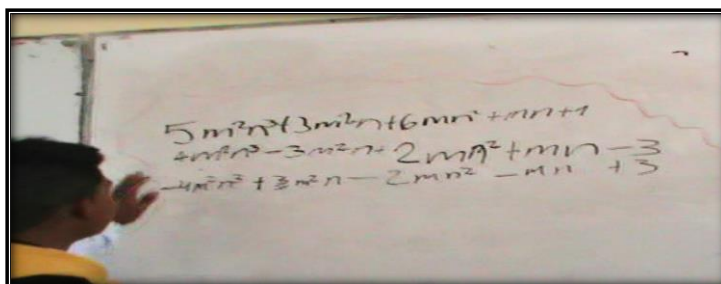 5m²n³+3m²n+6mn²+mn+1
4m²n³-3m²n+2mn²+mn-3
-4m²n³+3m²n-2mn²-mn+3